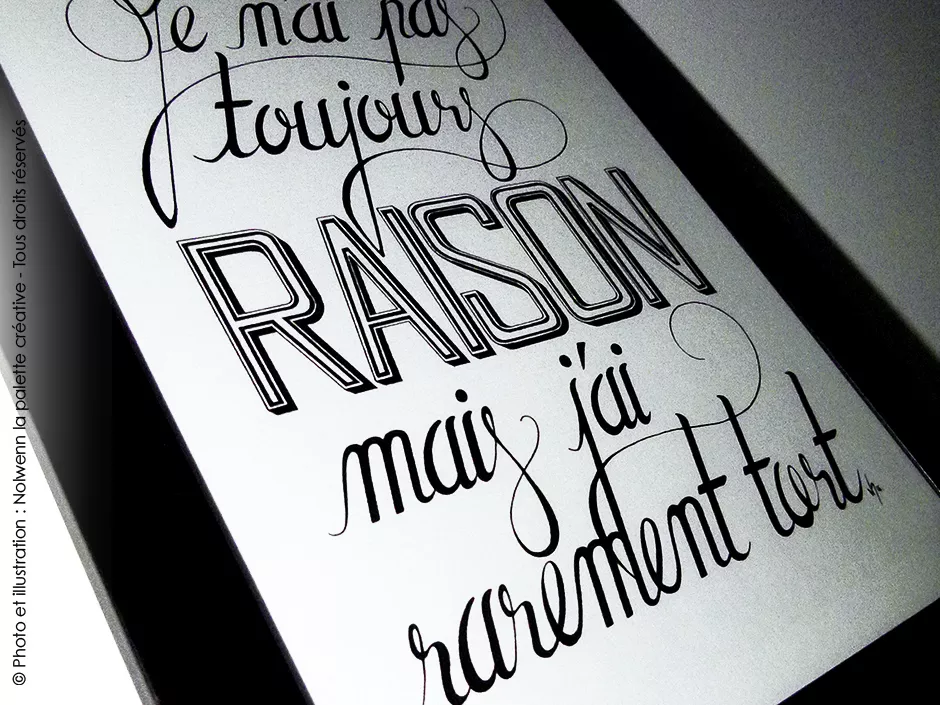 Je n'ai pas
toujours
RAISON
mais j'ai
rarement tort.
© Photo et illustration : Nolwenn la palette créative - Tous droits réservés